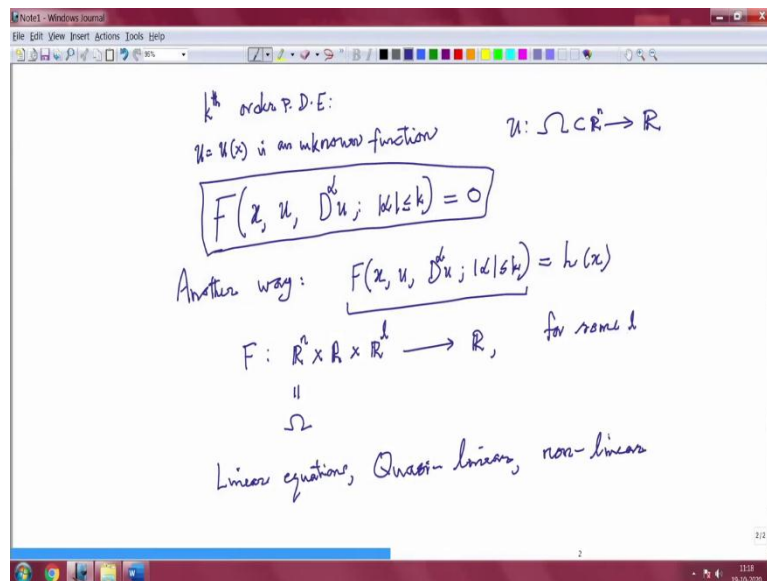 Note1 - Windows Journal
File Edit View Insert Actions Tools Help
kth order P.D.E:
u = u(x) is an unknown function
u: Ω ⊂ ℝⁿ → ℝ
F(x, u, D^α u; |α| ≤ k) = 0
Another way: F(x, u, D^α u; |α| ≤ k) = h(x)
F: ℝⁿ × ℝ × ℝˡ → ℝ, for some l
॥
Ω
Linear equations, Quasi-linear, non-linear
2/2
2
11:18
19-10-2020